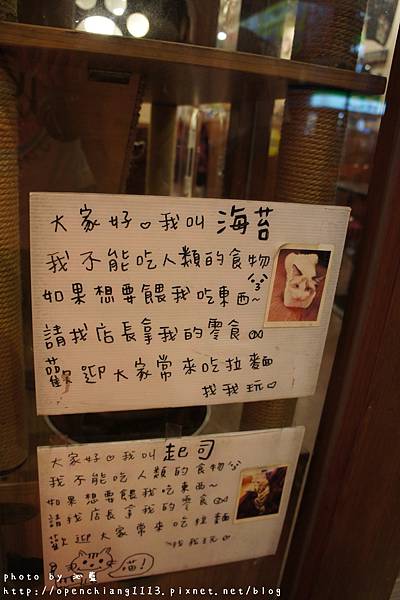 大家好♡我叫 海苔
我不能吃人類的食物
如果想要餵我吃東西~
請找店長拿我的零食
歡迎大家常來吃拉麵
找我玩♡
大家好♡我叫 起司
我不能吃人類的食物
如果想要餵我吃東西~
請找店長拿我的零食
歡迎大家常來吃拉麵
找我玩♡
喵!
photo by
http://openchiang1113.pixnet.net/blog